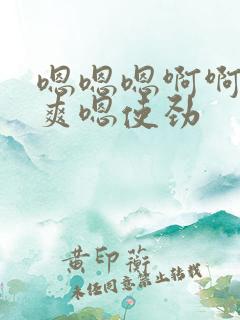 嗯嗯嗯啊啊
爽嗯使劲
黄印蘅
未经同意禁止转载